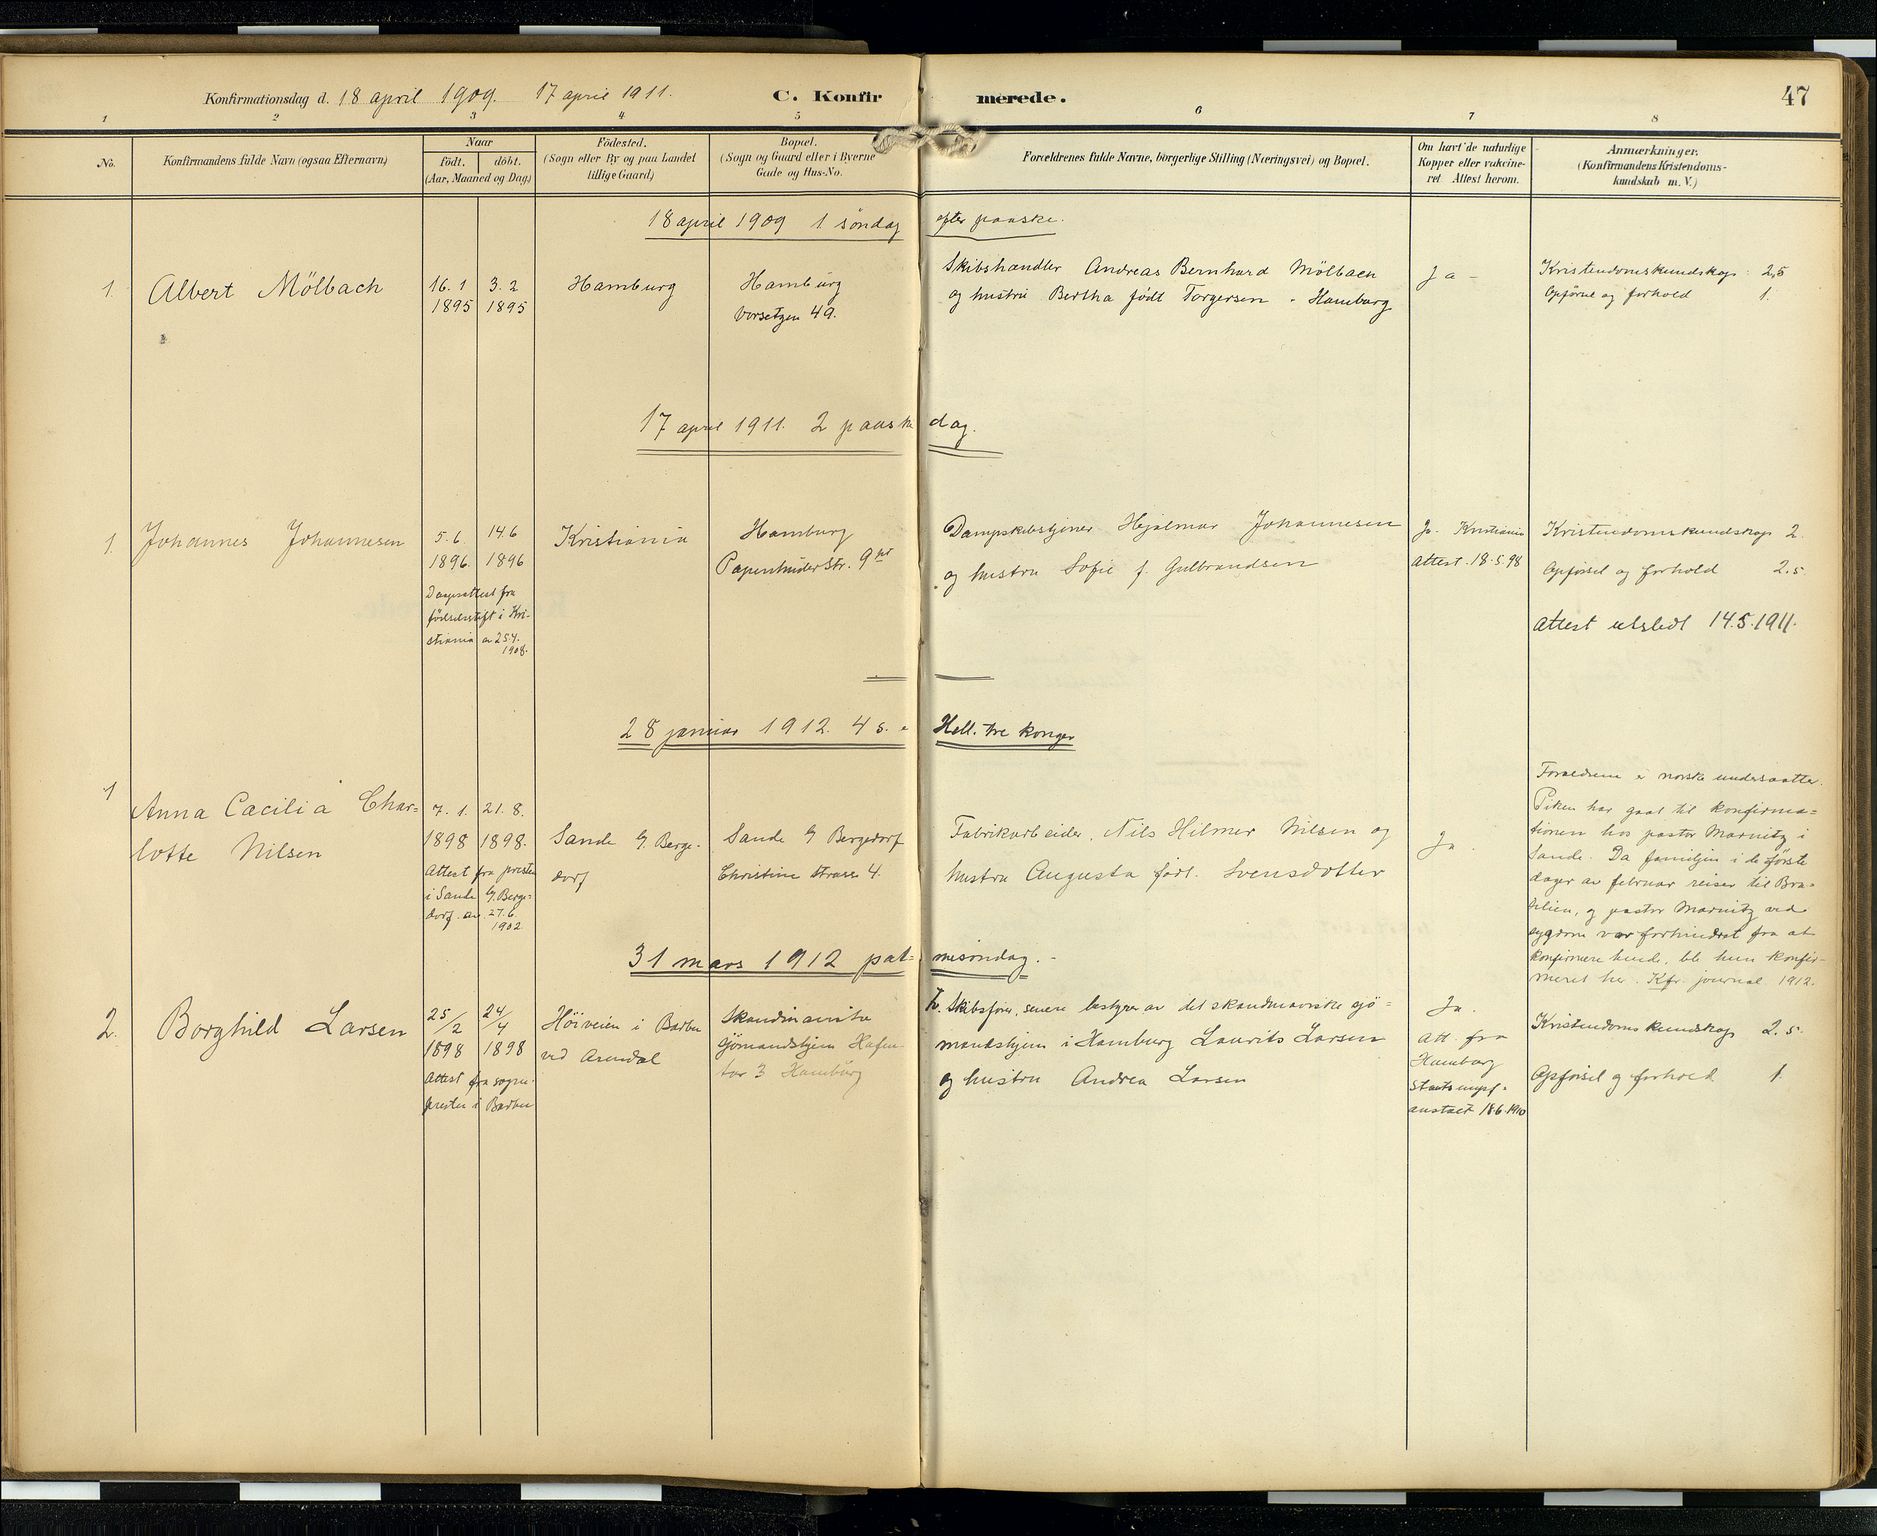 Konfirmationsdag d. 18 april 1909. 17 april 1911. C. Konfirmerede. 47
1 2 3 4 5 6 7 8
No.
Konfirmandens fulde Navn (ogsaa Efternavn)
Naar
født. døbt.
(Aar, Maaned og Dag)
Fødested.
(Sogn eller By og paa Landet
tillige Gaard)
Bopæl.
(Sogn og Gaard eller i Byerne
Gade og Hus-No.
Forældrenes fulde Navne, borgerlige Stilling (Næringsvei) og Bopæl.
Om havt de naturlige
Kopper eller vakcine-
ret Attest herom.
Anmærkninger.
(Konfirmandens Kristendoms-
kundskab m. V.)
18 april 1909 1. søndag efter paaske.
1.
Albert Mölbach
16. 1 3. 2
1895 1895
Hamburg
Hamburg
Vorsetzen 49.
Skibshandler Andreas Bernhard Mölbach
og hustru Bertha født Torgersen - Hamburg
Ja -
Kristendomskundskap: 2,5
Opførsel og forhold 1.
17 april 1911. 2 paaskedag.
1.
Johannes Johannesen
5. 6. 14.6
1896. 1896
Daapsattest fra
fødselsstift i Kri-
stiania av 25.4.
1908.
Kristiania
Hamburg
Papenhuder Str. 9 pt
Dampskibstjener Hjalmar Johannesen
og hustru Sofie f. Gulbrandsen
Ja. Kristiania
Attest. 18.5.98
Kristendomskundskap 2.
Opførsel og forhold 2.5.
Attest utstedt 14.5.1911.
28 januar 1912. 4 s. e Hell. tre konger
1
Anna Cacilia Char=
lotte Nilsen
7. 1. 21. 8.
1898 1898.
Attest fra presten
i Sande b/ Berge=
dorf. av. 27.6.
1902
Sande b/ Berge-
dorf
Sande b/ Bergedorf
Christine strasse 4.
Fabrikarbeider, Nils Hilmer Nilsen og
hustru Augusta født. Svensdotter
Ja.
Forældrene er norske undersaatter.
Piken har gaat til konfirma-
tionen hos pastor Marnitz i
Sande. Da familjen i de første
dager av februar reiser til Bra-
silien, og pastor Marnitz ved
sygdom var forhindret fra at
konfirmere hende, ble hun konfir-
meret her. Kfr. journal 1912.
31 mars 1912 palmesøndag. -
2.
Borghild Larsen
25/2 24/4
1898 1898
Attest fra sogne-
presten i Barbu
Høiveien i Barbu
ved Arendal
Skandinaviske
sjømandshjem Hafen-
tor 3 Hamburg
Skibsfører, senere bestyrer av det skandinaviske sjø=
mandshjem i Hamburg Laurits Larsen
og hustru Andrea Larsen
Ja.
Att. fra
Hamburg
Staatsimpf=
anstalt 18.6.1910
Kristendomskundskap 2.5.
Opførsel og forhold 1.